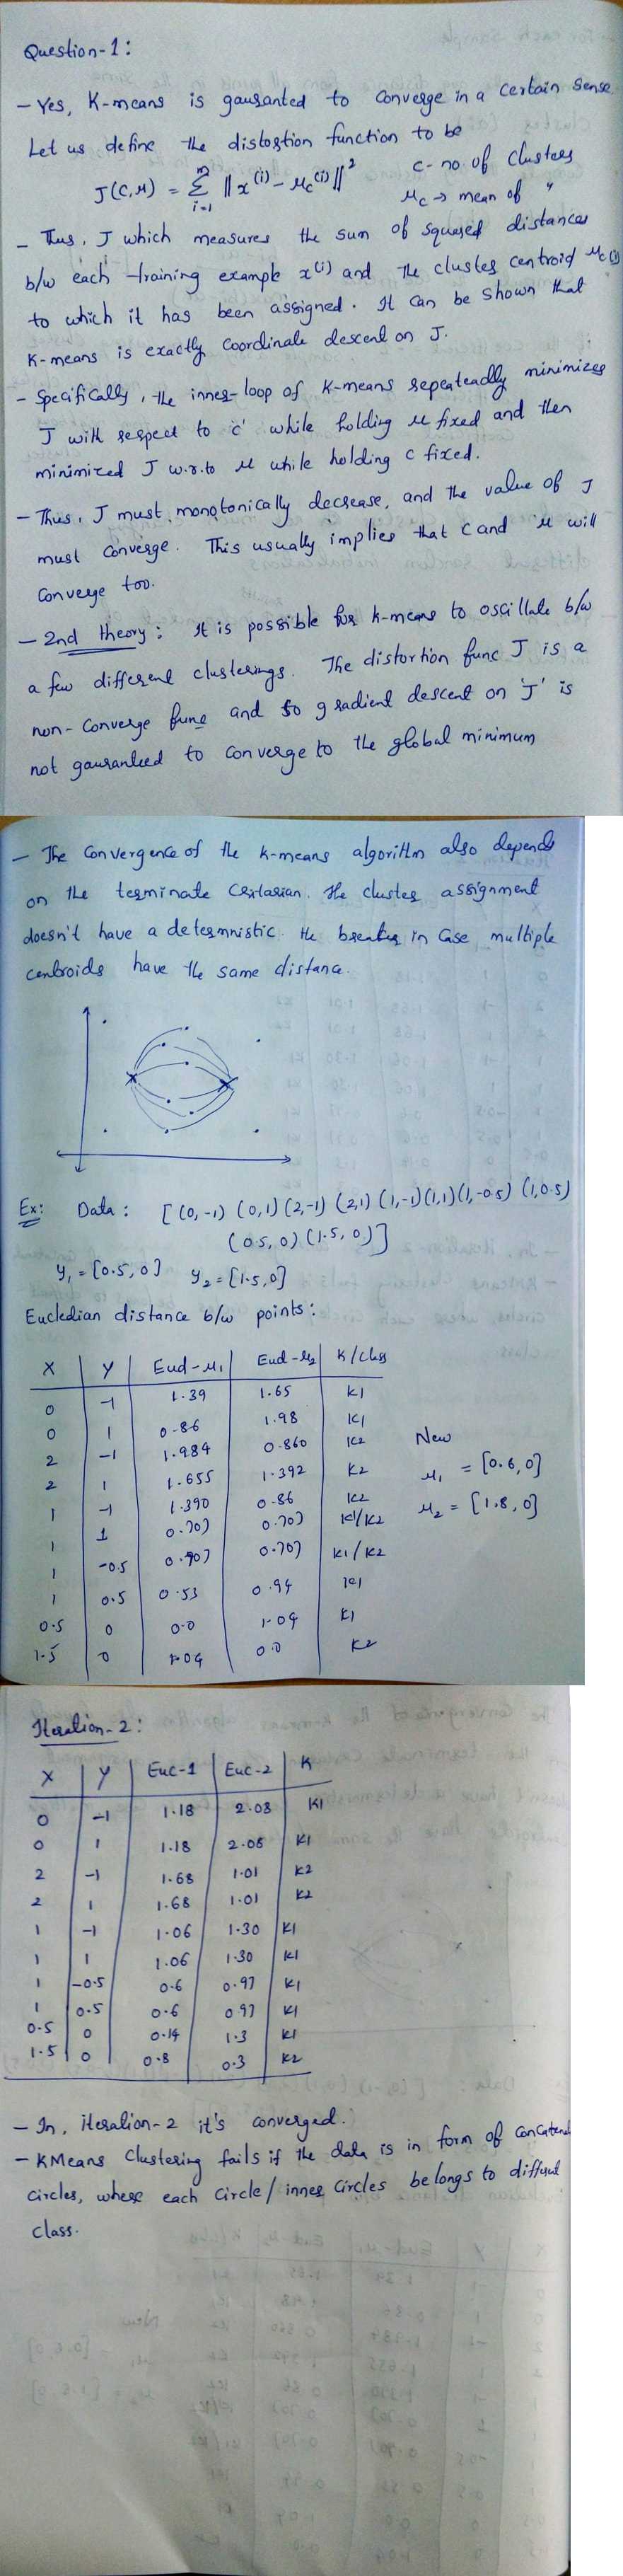 Question-1:
- Yes, K-means is gauranted to converge in a certain sense
Let us define the distortion function to be
J(C,μ) = Σ i=1 m ||x^(i) - μc^(i)||²
c- no of clusters
μc → mean of "
- Thus, J which measures the sum of squared distances
b/w each training example x^(i) and the cluster centroid μc(i)
to which it has been assigned. It can be shown that
K-means is exactly coordinate descent on J.
- Specifically, the inner-loop of K-means repeateadly minimizes
J with respect to 'c' while holding μ fixed and then
minimized J w.r.to μ while holding c fixed.
- Thus, J must monotonically decrease, and the value of J
must converge. This usually implies that c and μ will
converge too.
- 2nd theory: It is possible for k-means to oscillate b/w
a few different clusterings. The distortion func J is a
non-converge func and so gradient descent on 'J' is
not gauranteed to converge to the global minimum
- The convergence of the k-means algorithm also depends
on the terminate critarian. The cluster assignment
doesn't have a determnistic the breaker in case multiple
centroids have the same distance.
Ex: Data: [(0,-1) (0,1) (2,-1) (2,1) (1,-1) (1,1) (1,-0.5) (1,0.5)
(0.5,0) (1.5,0)]
y₁ = [0.5,0] y₂ = [1.5,0]
Eucledian distance b/w points:
X Y Eud-μ₁ Eud-μ₂ K/class
0 -1 1.39 1.65 K1
0 1 0.86 1.98 K1
2 -1 1.984 0.860 K2
2 1 1.655 1.392 K2
1 -1 1.390 0.86 K2
1 1 0.707 0.707 K1/K2
1 -0.5 0.707 0.707 K1/K2
1 0.5 0.53 0.94 K1
0.5 0 0.0 1.04 K1
1.5 0 1.04 0.0 K2
New
μ₁ = [0.6,0]
μ₂ = [1.8,0]
Iteration-2:
X Y Euc-1 Euc-2 K
0 -1 1.18 2.08 K1
0 1 1.18 2.08 K1
2 -1 1.68 1.01 K2
2 1 1.68 1.01 K2
1 -1 1.06 1.30 K1
1 1 1.06 1.30 K1
1 -0.5 0.6 0.97 K1
1 0.5 0.6 0.97 K1
0.5 0 0.14 1.3 K1
1.5 0 0.8 0.3 K2
- In, iteration-2 it's converged.
- KMeans clustering fails if the data is in form of
circles, where each circle/inner circles belongs to different
class.